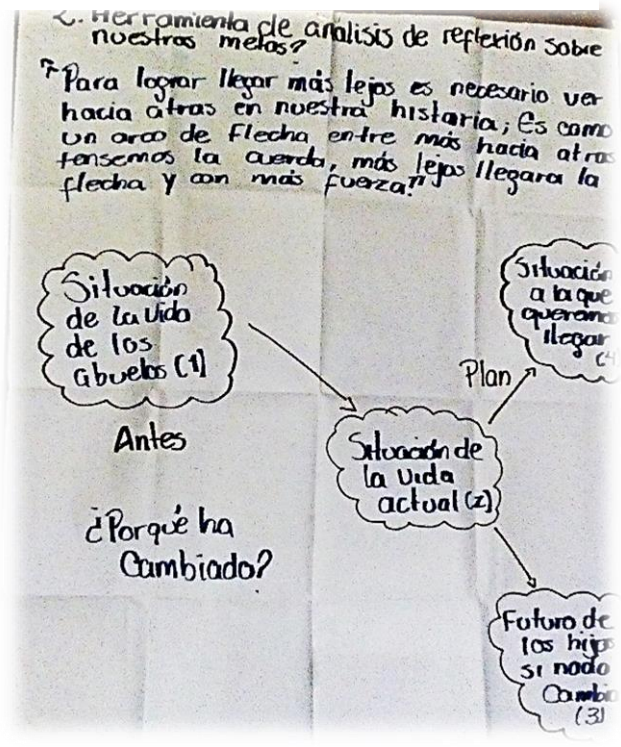 2. Herramienta de análisis de reflexión sobre
nuestras metas?
"Para lograr llegar más lejos es necesario ver
hacia átras en nuestra historia; Es como
un arco de Flecha entre más hacia atras
tensemos la cuerda, más lejos llegara la
flecha y con más fuerza."
Situación
de la vida
de los
abuelos (1)
Antes
¿Porqué ha
Cambiado?
Situación de
la vida
actual (2)
Plan
Situación
a la que
queramos
llegar
(4
Futuro de
los hijos
si nada
Cambia
(3)